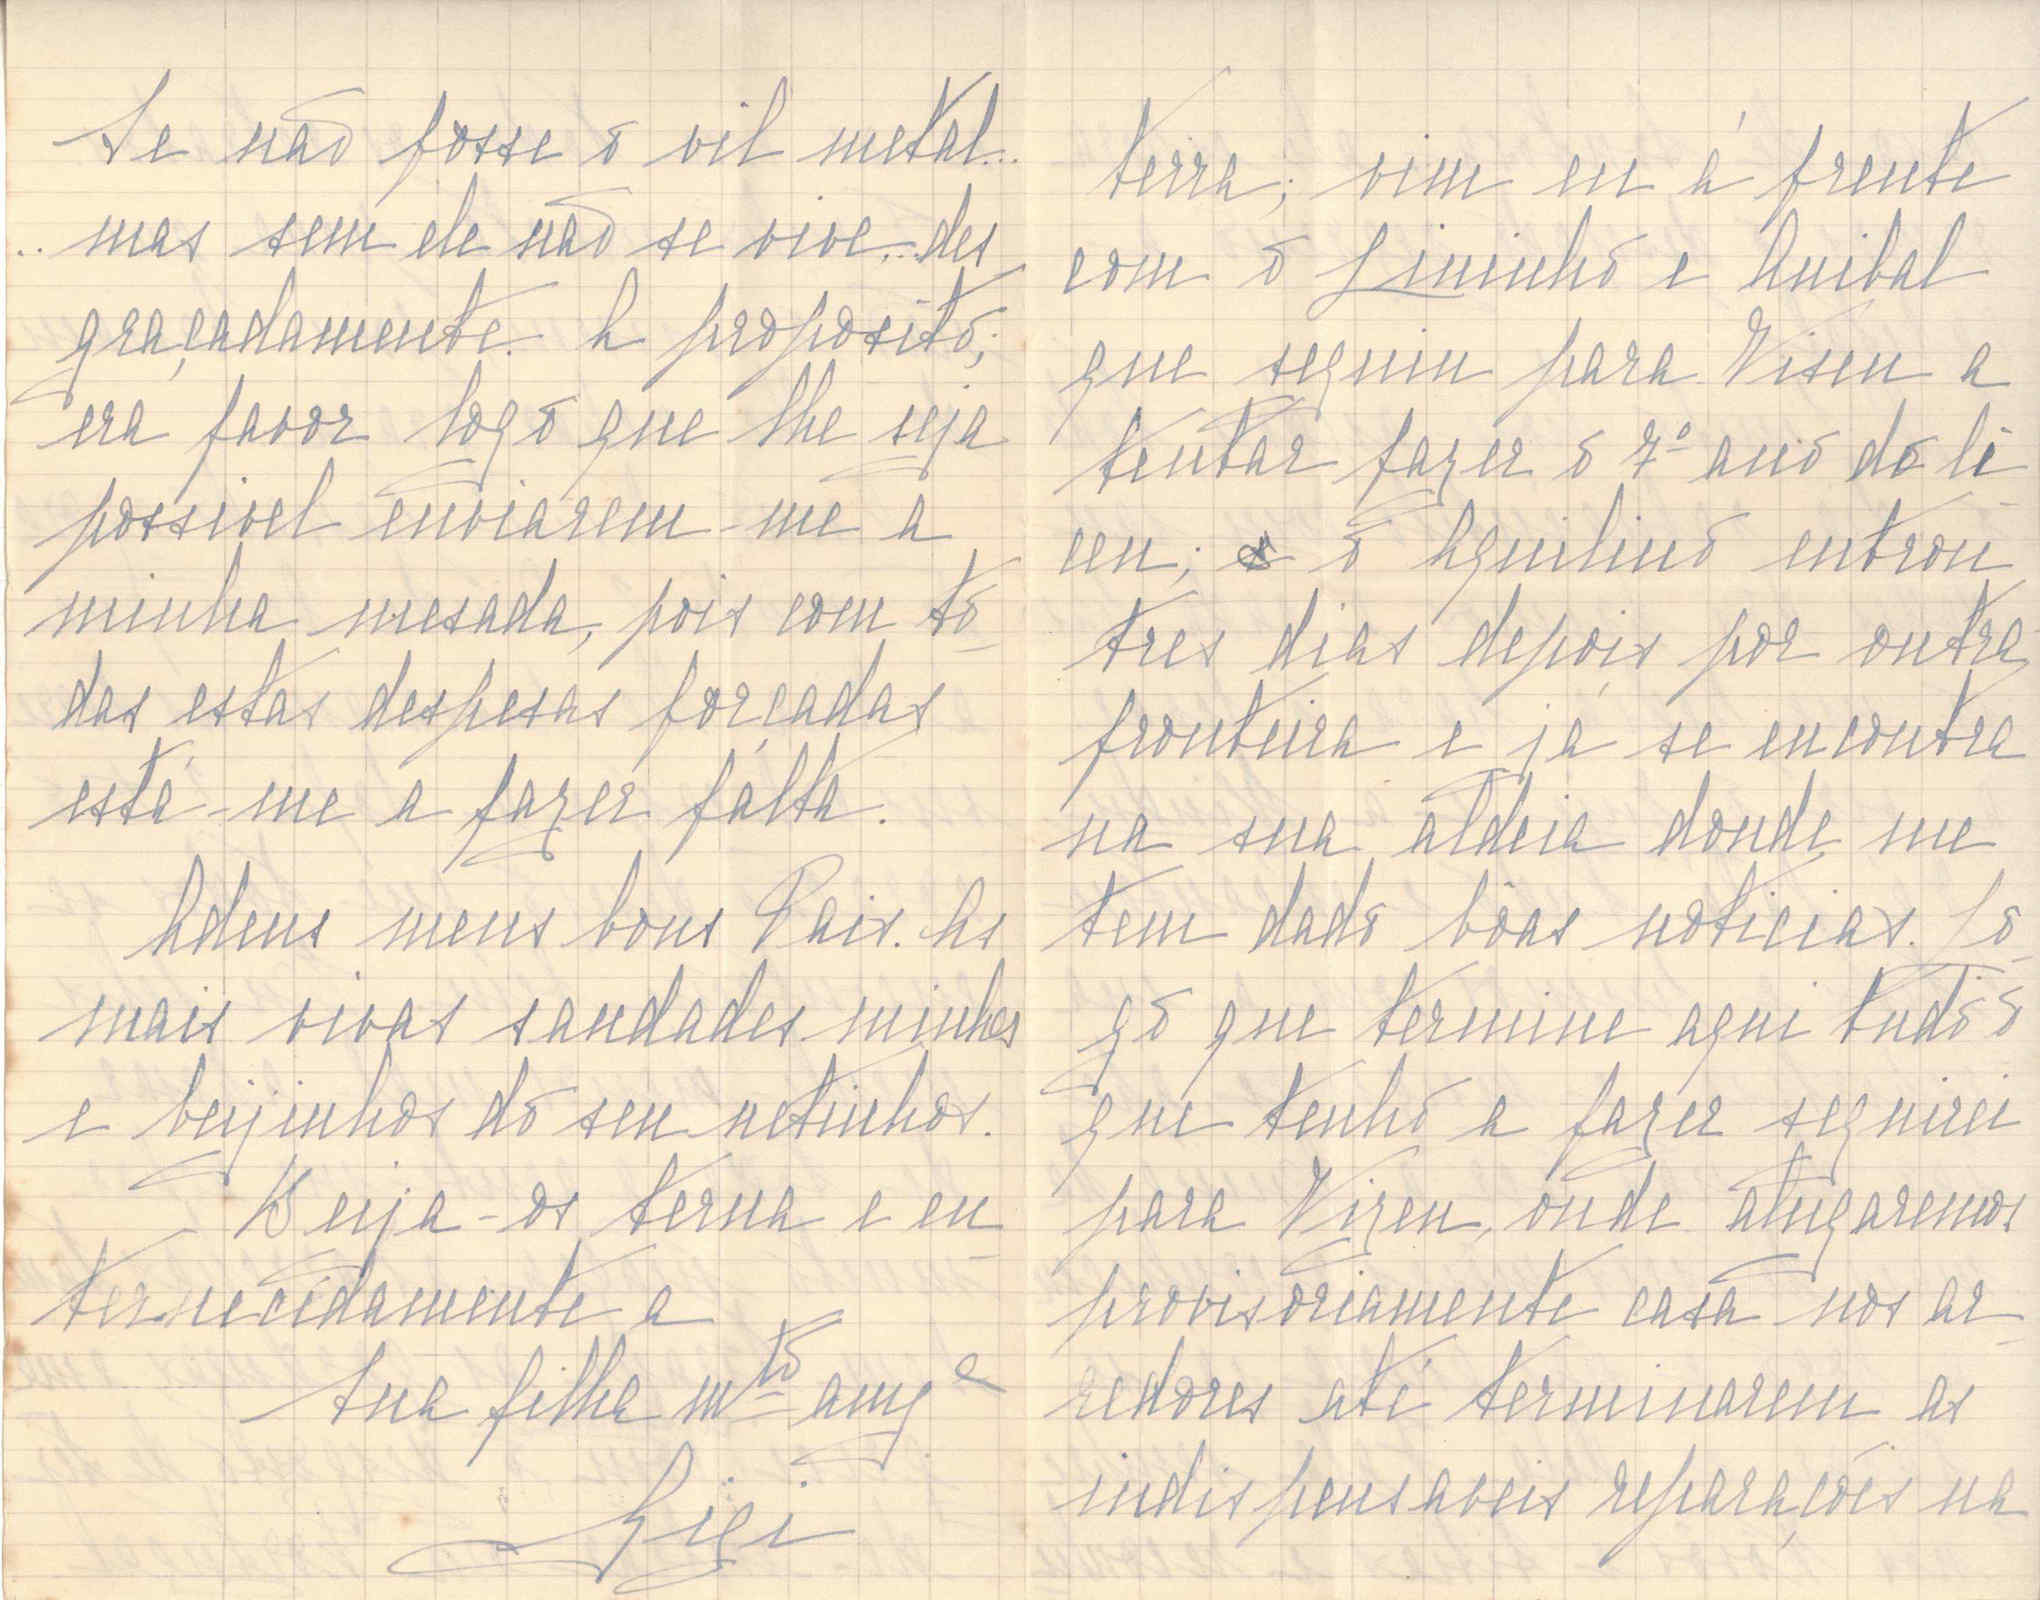 Se não fosse o vil metal...
.. mas sem ele não se vive... des
graçadamente. A proposito;
era favor logo que lhe seja
possivel enviarem-me a
minha mesada, pois com to-
das estas despesas forçadas
está-me a fazer falta.
Adeus meus bons Pais. As
mais vivas saudades minhas
e beijinhos do seu netinhos.
Beija-os terna e en-
ternecidamente a
sua filha mto amga
Gigi
terra; vim eu á frente
com o Lininho e Anibal
que seguiu para Viseu a
tentar fazer o 7º ano do li-
ceu; o Aquilino entrou
tres dias depois por outra
fronteira e já se encontra
na sua aldeia donde me
tem dado bôas noticias. Lo-
go que termine aqui tudo o
que tenho a fazer seguirei
para Vizeu, onde alugaremos
provisoriamente casa nos ar-
redores até terminarem as
indispensaveis reparações na